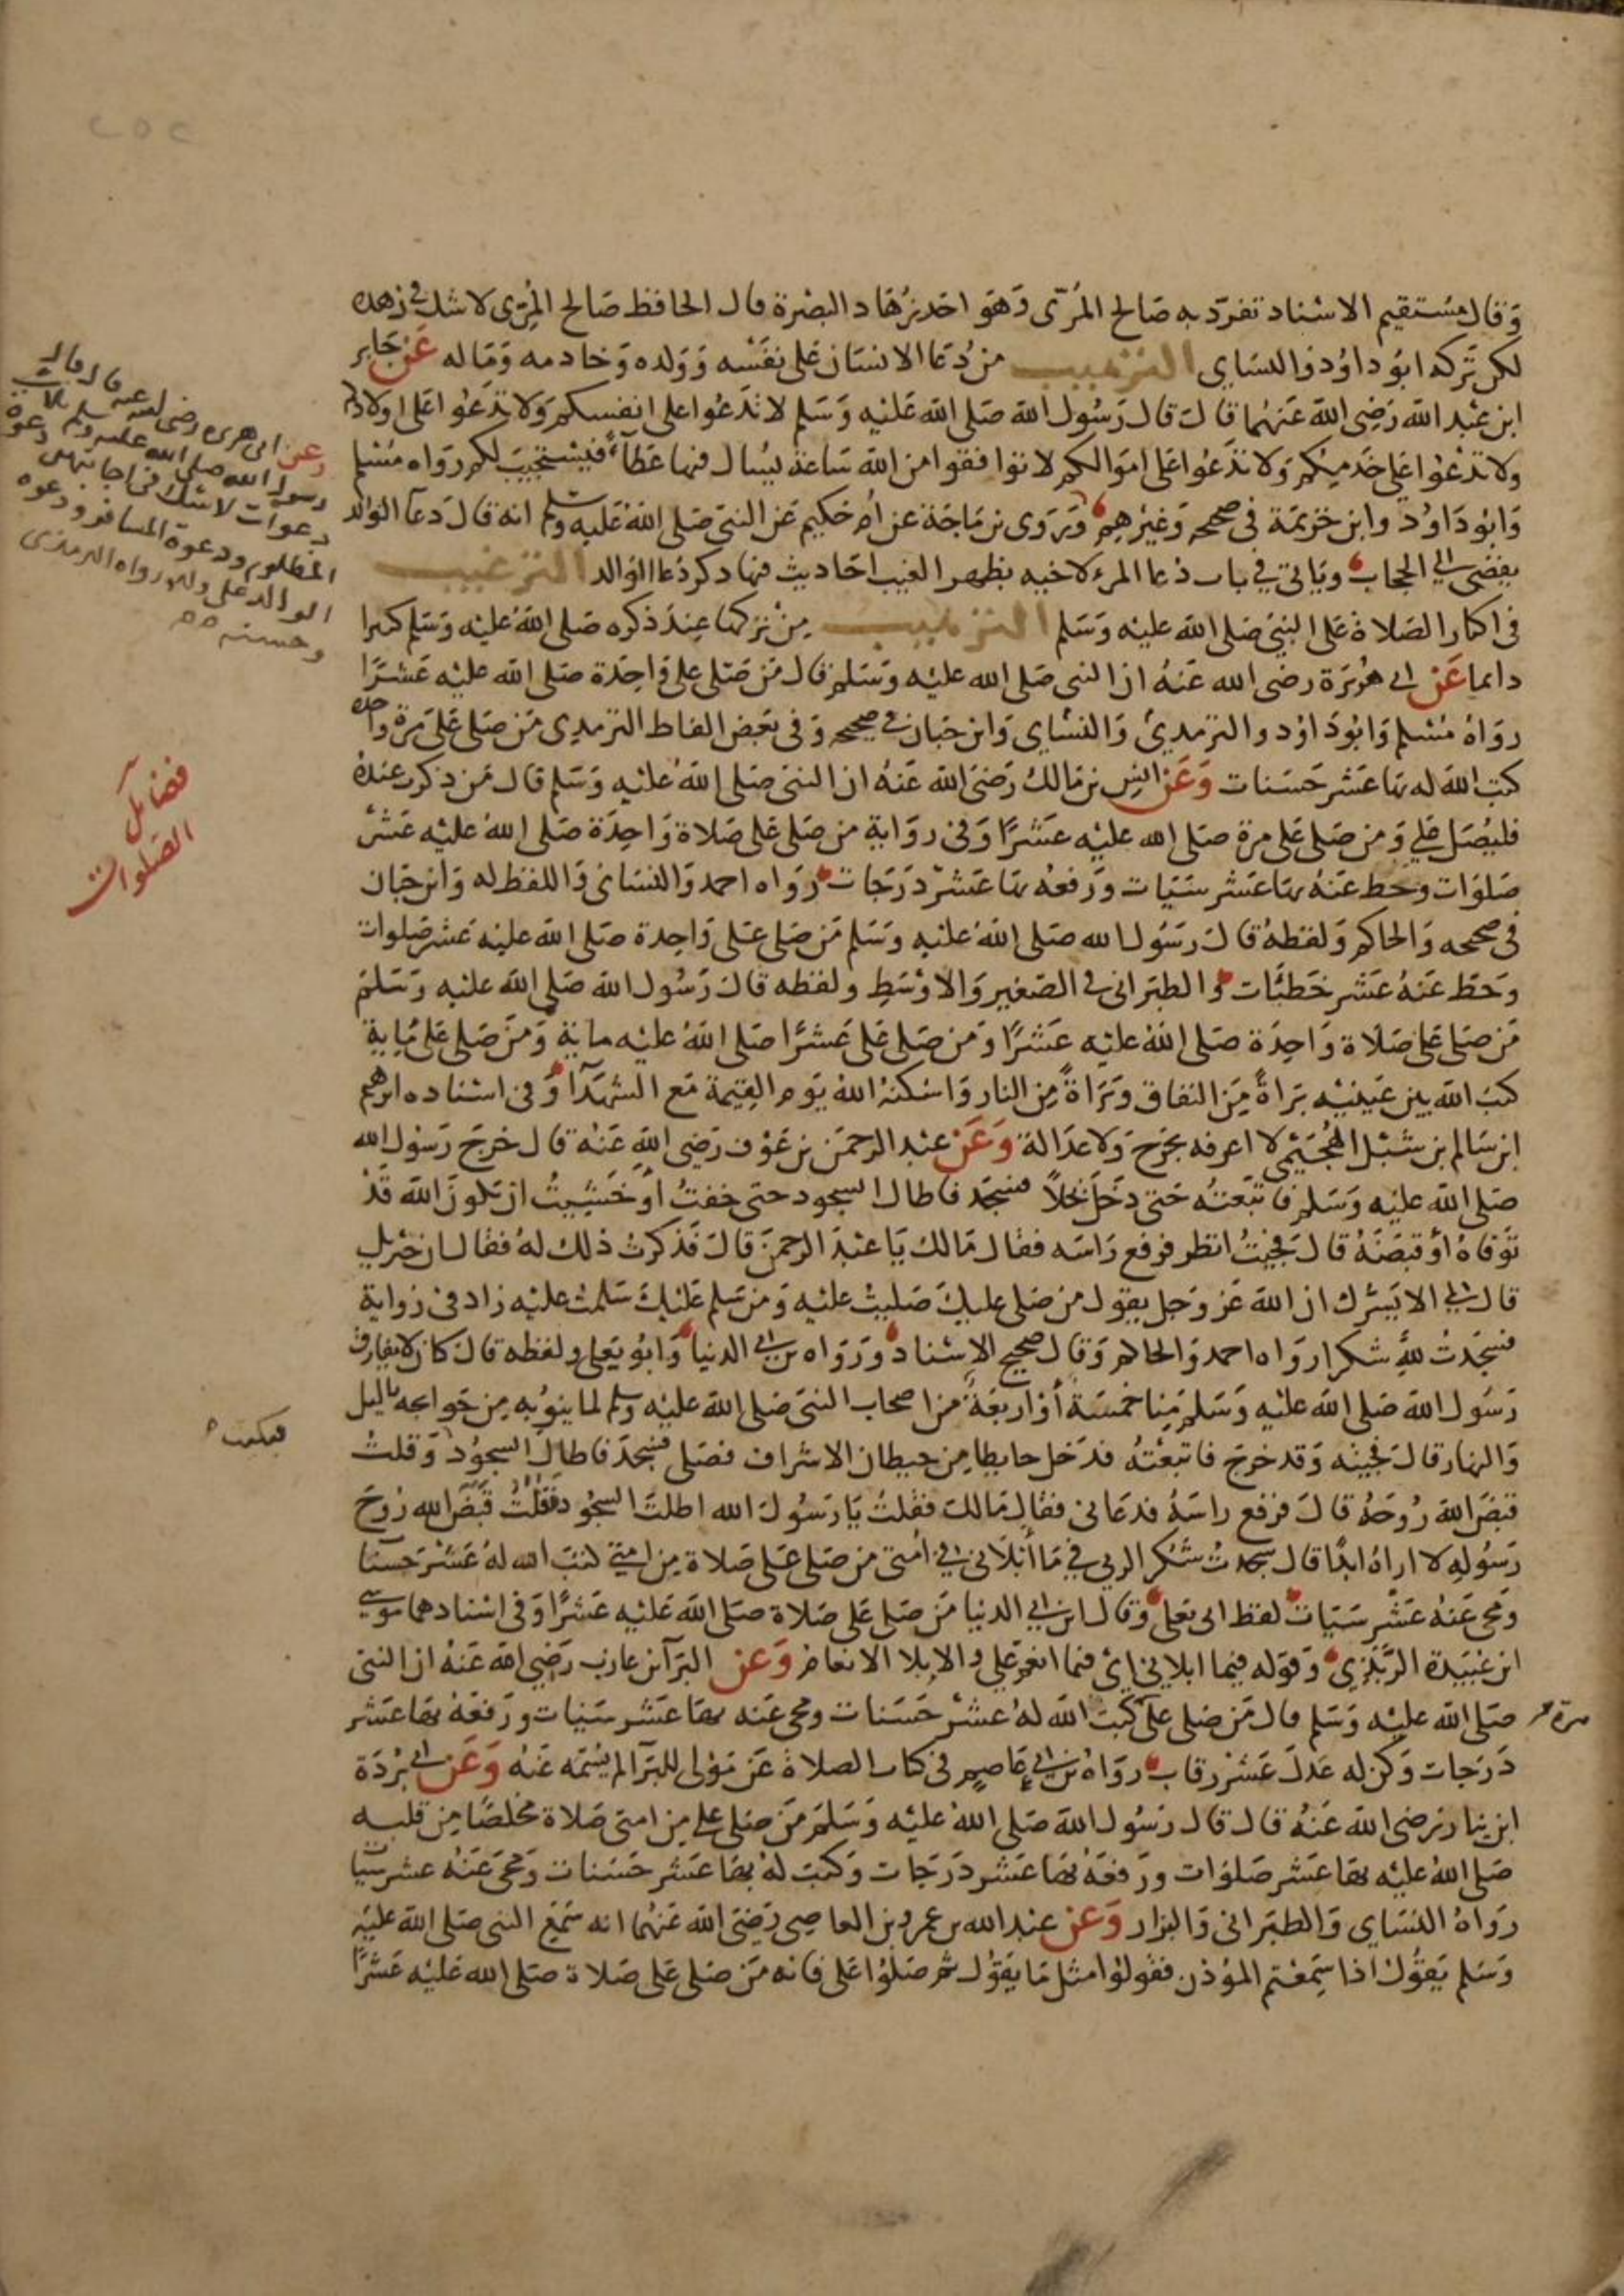 ٢٥٢
وقال مستقيم الاسناد تفرد به صالح المري وهو احد زهاد البصرة قال الحافظ صالح المري لا شك في زهده
لكن تركه ابو داود والنسايي الترهيب من دعا الانسان على نفسه وولده وخادمه وماله عن جابر
ابن عبد الله رضي الله عنهما قال قال رسول الله صلى الله عليه وسلم لا تدعوا على انفسكم ولا تدعوا على اولادكم
ولا تدعوا على خدمكم ولا تدعوا على اموالكم لا توافقوا من الله ساعة يسال فيها عطاء فيستجيب لكم رواه مسلم
وابو داود وابن خزيمة في صحيحه وغيرهم وروى بن ماجة عن ام حكيم عن النبي صلى الله عليه وسلم انه قال دعآ الوالد
يفضي الى الحجاب وياتي في باب دعا المرء لاخيه بظهر الغيب احاديث فيها ذكر دعا الوالد الترغيب
في اكثار الصلاة على النبي صلى الله عليه وسلم الترهيب من تركها عند ذكره صلى الله عليه وسلم كثيرا
دايما عن ابي هريرة رضي الله عنه ان النبي صلى الله عليه وسلم قال من صلى علي واحدة صلى الله عليه عشرًا
رواه مسلم وابو داود والترمدي والنساي وابن حبان في صحيحه وفي بعض الفاظ الترمدي من صلى علي مرة واحدة
كتب الله له بها عشر حسنات وعن انس بن مالك رضي الله عنه ان النبي صلى الله عليه وسلم قال من ذكرت عنده
فليصل علي ومن صلى علي مرة صلى الله عليه عشرًا وفي رواية من صلى علي صلاة واحدة صلى الله عليه عشر
صلوات وحط عنه بها عشر سيات ورفعه بها عشر درجات رواه احمد والنساي واللفظ له وابن حبان
في صحيحه والحاكم ولفظه قال رسول الله صلى الله عليه وسلم من صلى علي واحدة صلى الله عليه عشر صلوات
وحط عنه عشر خطيات والطبراني في الصغير والاوسط ولفظه قال رسول الله صلى الله عليه وسلم
من صلى علي صلاة واحدة صلى الله عليه عشرًا ومن صلى علي عشرًا صلى الله عليه ماية ومن صلى علي ماية
كتب الله بين عينيه براة من النفاق وبراة من النار واسكنه الله يوم القيمة مع الشهدآ وفي اسناده ابرهيم
ابن سالم بن شبل الهجيمي لا اعرفه بجرح ولا عدالة وعن عبد الرحمن بن عوف رضي الله عنه قال خرج رسول الله
صلى الله عليه وسلم فاتبعته حتى دخل نخلاً فسجد فاطال السجود حتى خفت او خشيت ان يكون الله قد
توفاه او قبضه قال فجيت انظر فرفع راسه فقال مالك يا عبد الرحمن قال فذكرت ذلك له فقال ان جبريل
قال لي الا ابشرك ان الله عز وجل يقول من صلى عليك صليت عليه ومن سلم عليك سلمت عليه زاد في رواية
فسجدت لله شكرا رواه احمد والحاكم وقال صحيح الاسناد ورواه بن ابي الدنيا وابو يعلى ولفظه قال كان لا يفارق
رسول الله صلى الله عليه وسلم منا خمسة أو اربعة من اصحاب النبي صلى الله عليه وسلم لما ينوبه من حوايجه بالليل
والنهار قال فجيته وقد خرج فاتبعته فدخل حايطا من حيطان الاشراف فصلى فسجد فاطال السجود وقلت
قبض الله روحه قال فرفع راسه فدعاني فقال مالك فقلت يا رسول الله اطلت السجود فقلت قبض الله روح
رسوله لا اراه ابدًا قال سجدت شكر الربي في ما أبلاني في أمتي من صلى علي صلاة من امتي كتب الله له عشر حسنا
ومحى عنه عشر سيات لفظ ابي يعلى وقال ابن ابي الدنيا من صلى علي صلاة صلى الله عليه عشرًا وفي اسنادهما موسى
ابن عبيدة الربذي وقوله فيما ابلاني اي فيما انعم علي والابلا الانعام وعن البرآ بن عازب رضي الله عنه ان النبي
صلى الله عليه وسلم قال من صلى علي كتب الله له عشر حسنات ومحى عنه بها عشر سيات ورفعه بها عشر
درجات وكن له عدل عشر رقاب رواه بن ابي عاصم في كتاب الصلاة عن مولى للبرآ لم يسمه عنه وعن ابي بردة
ابن نيار رضي الله عنه قال قال رسول الله صلى الله عليه وسلم من صلى علي من امتي صلاة مخلصا من قلبه
صلى الله عليه بها عشر صلوات ورفعه بها عشر درجات وكتب له بها عشر حسنات ومحى عنه عشر سيات
رواه النساي والطبراني والبزار وعن عبد الله بن عمرو بن العاصي رضي الله عنهما انه سمع النبي صلى الله عليه
وسلم يقول اذا سمعتم المؤذن فقولوا مثل ما يقول ثم صلوا علي فانه من صلى علي صلاة صلى الله عليه عشرًا
وعن ابي هريره رضي الله عنه قال قال
رسول الله صلى الله عليه وسلم ثلاث
دعوات لا شك في اجابتهن دعوة
المظلوم ودعوة المسافر ودعوه
الوالد على ولده رواه الترمذي
وحسنه
فضايل
الصلوات
فبكيت
مرة